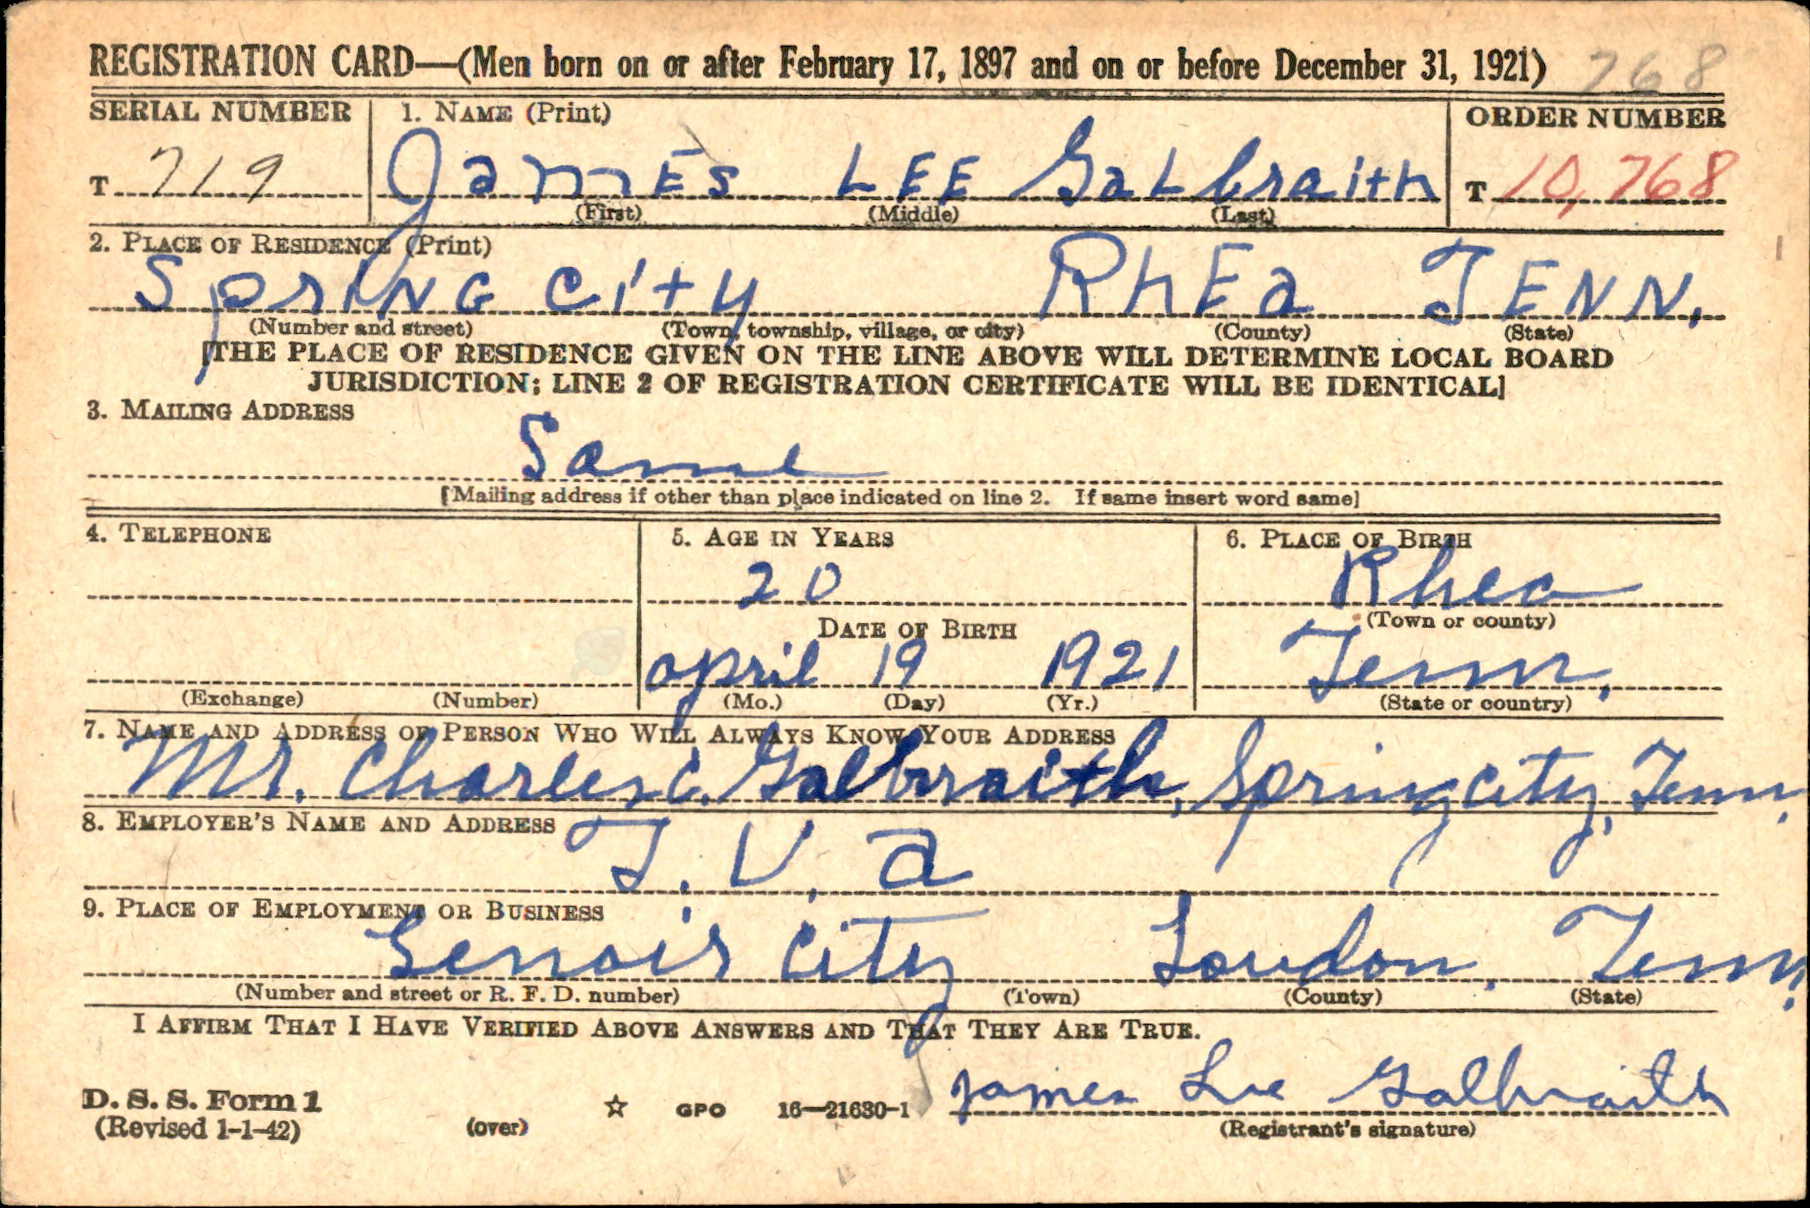 REGISTRATION CARD—(Men born on or after February 17, 1897 and on or before December 31, 1921) 768
SERIAL NUMBER 1. NAME (Print) ORDER NUMBER
T 719 JamEs LEE GaLbraith T 10,768
(First) (Middle) (Last)
2. PLACE OF RESIDENCE (Print)
SprING CitY RhEa TENN.
(Number and street) (Town, township, village, or city) (County) (State)
[THE PLACE OF RESIDENCE GIVEN ON THE LINE ABOVE WILL DETERMINE LOCAL BOARD
JURISDICTION; LINE 2 OF REGISTRATION CERTIFICATE WILL BE IDENTICAL]
3. MAILING ADDRESS
Same
[Mailing address if other than place indicated on line 2. If same insert word same]
4. TELEPHONE 5. AGE IN YEARS 6. PLACE OF BIRTH
20 Rhea
DATE OF BIRTH (Town or county)
april 19 1921 Tenn.
(Exchange) (Number) (Mo.) (Day) (Yr.) (State or country)
7. NAME AND ADDRESS OF PERSON WHO WILL ALWAYS KNOW YOUR ADDRESS
Mr. Charles C. Galbraith, Spring City, Tenn.
8. EMPLOYER'S NAME AND ADDRESS
T. V. a
9. PLACE OF EMPLOYMENT OR BUSINESS
Lenoir City Loudon, Tenn.
(Number and street or R. F. D. number) (Town) (County) (State)
I AFFIRM THAT I HAVE VERIFIED ABOVE ANSWERS AND THAT THEY ARE TRUE.
D. S. S. Form 1
(Revised 1-1-42) (over) ☆ GPO 16—21630-1 James Lee Galbraith
(Registrant's signature)